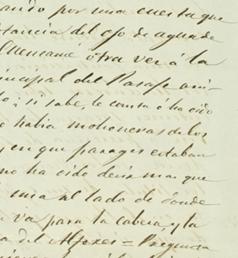 ando por una cuesta que
stancia del ojo de agua de
otra vez á la
ncipal del Pasaje
to; si sabe, le consta ó ha oido
e habia mohoneras de los
y en que parages estaban
no ha oido decir mas que
una al lado de donde
va para la cabeza, y la
del = Pregunta